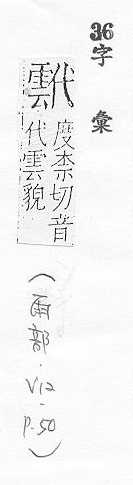 36字彙
度柰切音
代雲貌
(雨部·V12-p.50)